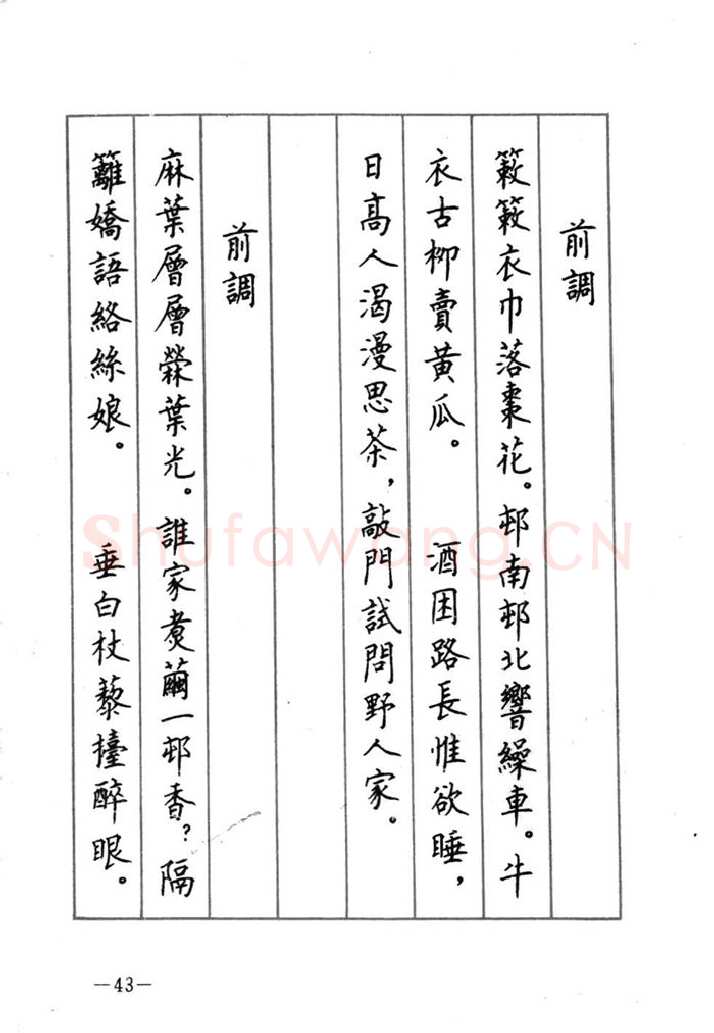 前調
簌簌衣巾落棗花。邨南邨北響繰車。牛
衣古柳賣黃瓜。　酒困路長惟欲睡，
日高人渴漫思茶，敲門試問野人家。
前調
麻葉層層檾葉光。誰家煮繭一邨香？隔
籬嬌語絡絲娘。　垂白杖藜擡醉眼。
Shufawang.CN
—43—